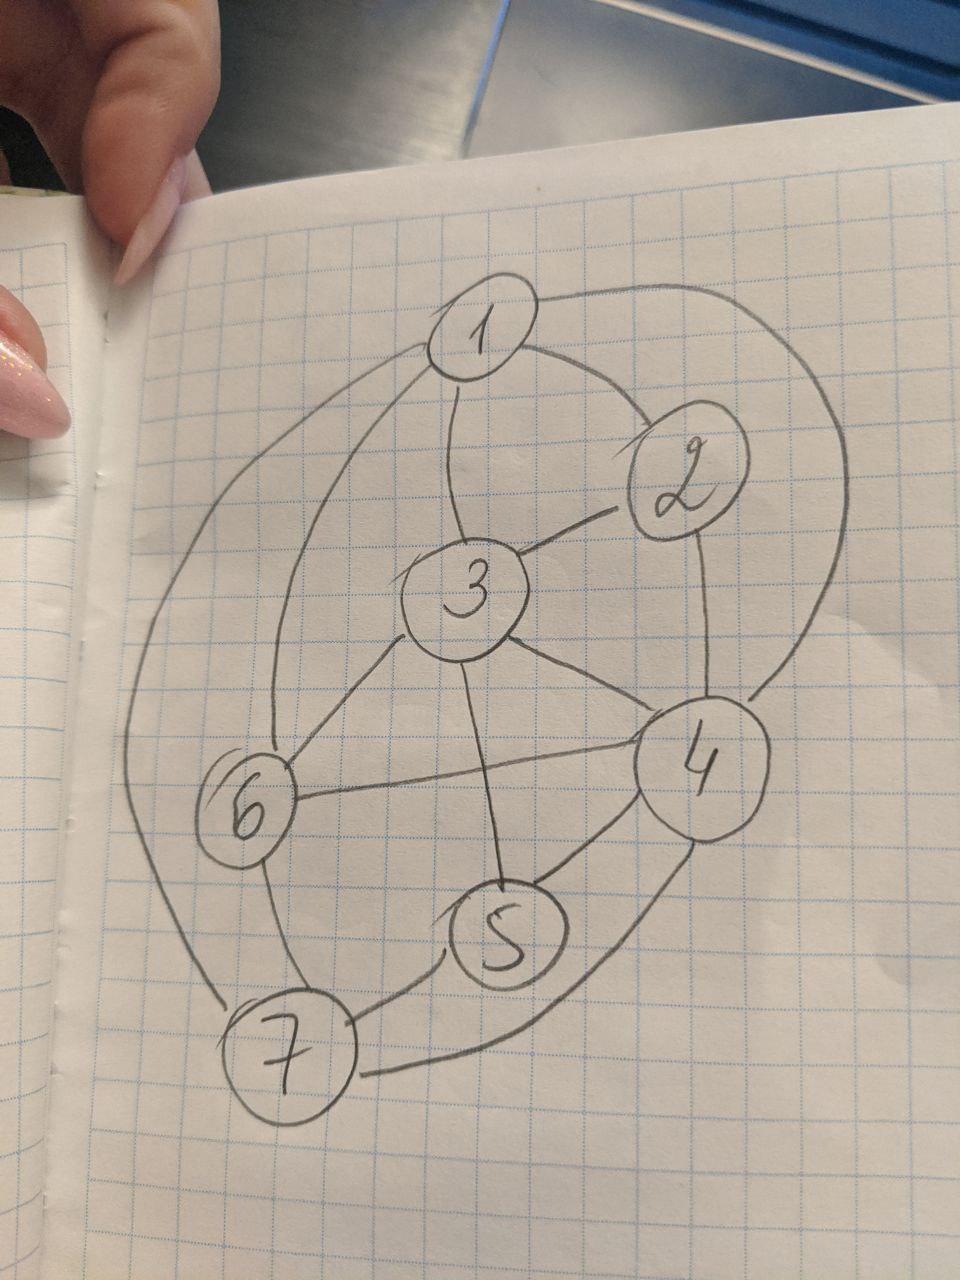 1
2
3
4
6
5
7